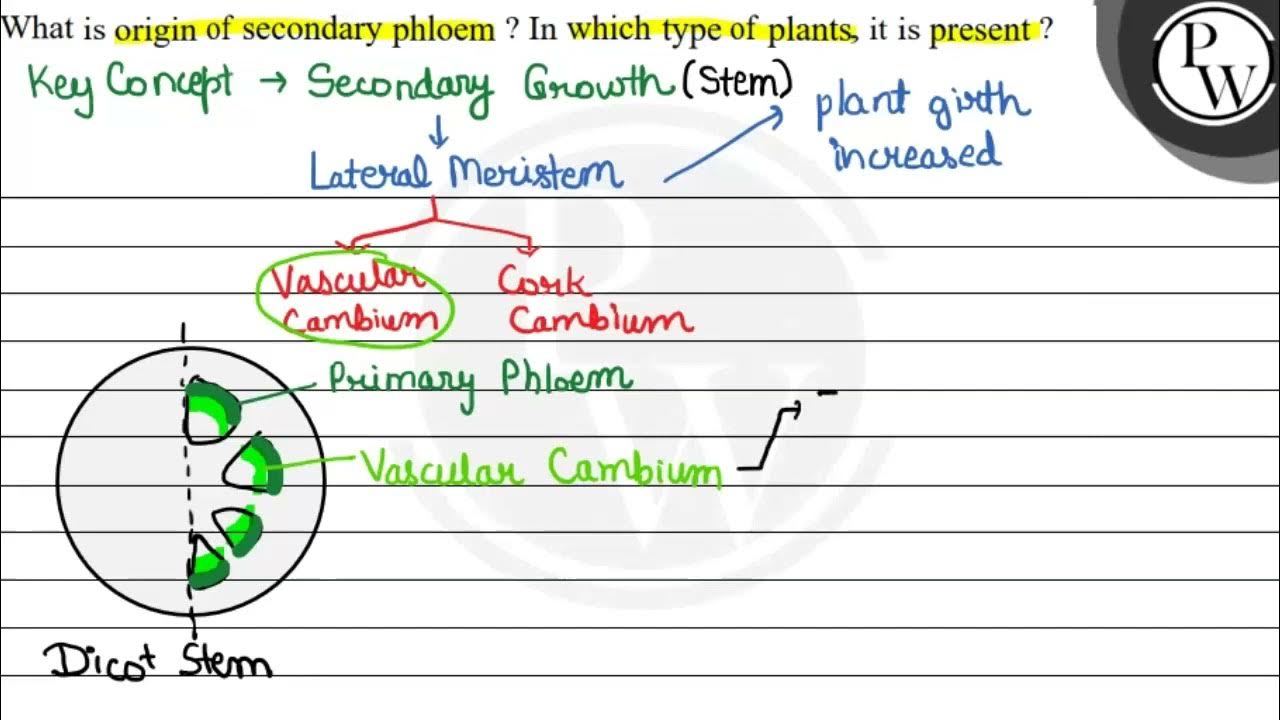 What is origin of secondary phloem ? In which type of plants, it is present ?
P
W
Key Concept → Secondary Growth (Stem)
plant girth
increased
↓
Lateral Meristem
Vascular
Cambium
Cork
Cambium
Primary Phloem
Vascular Cambium
Dicot Stem
P
W